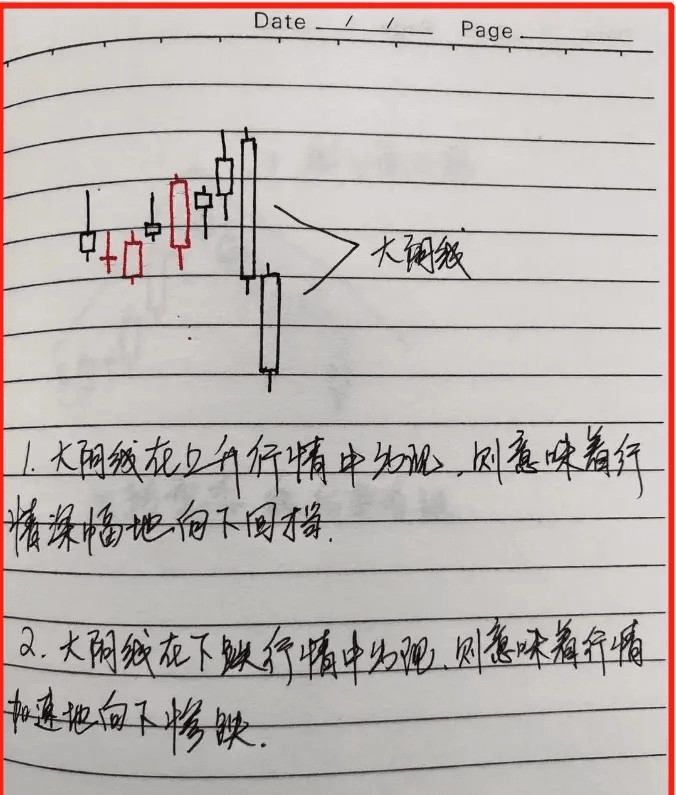 Date / / Page
大阴线
1. 大阴线在上升行情中出现,则意味着行
情深幅地向下回档.
2. 大阴线在下跌行情中出现,则意味着行情
加速地向下惨跌.